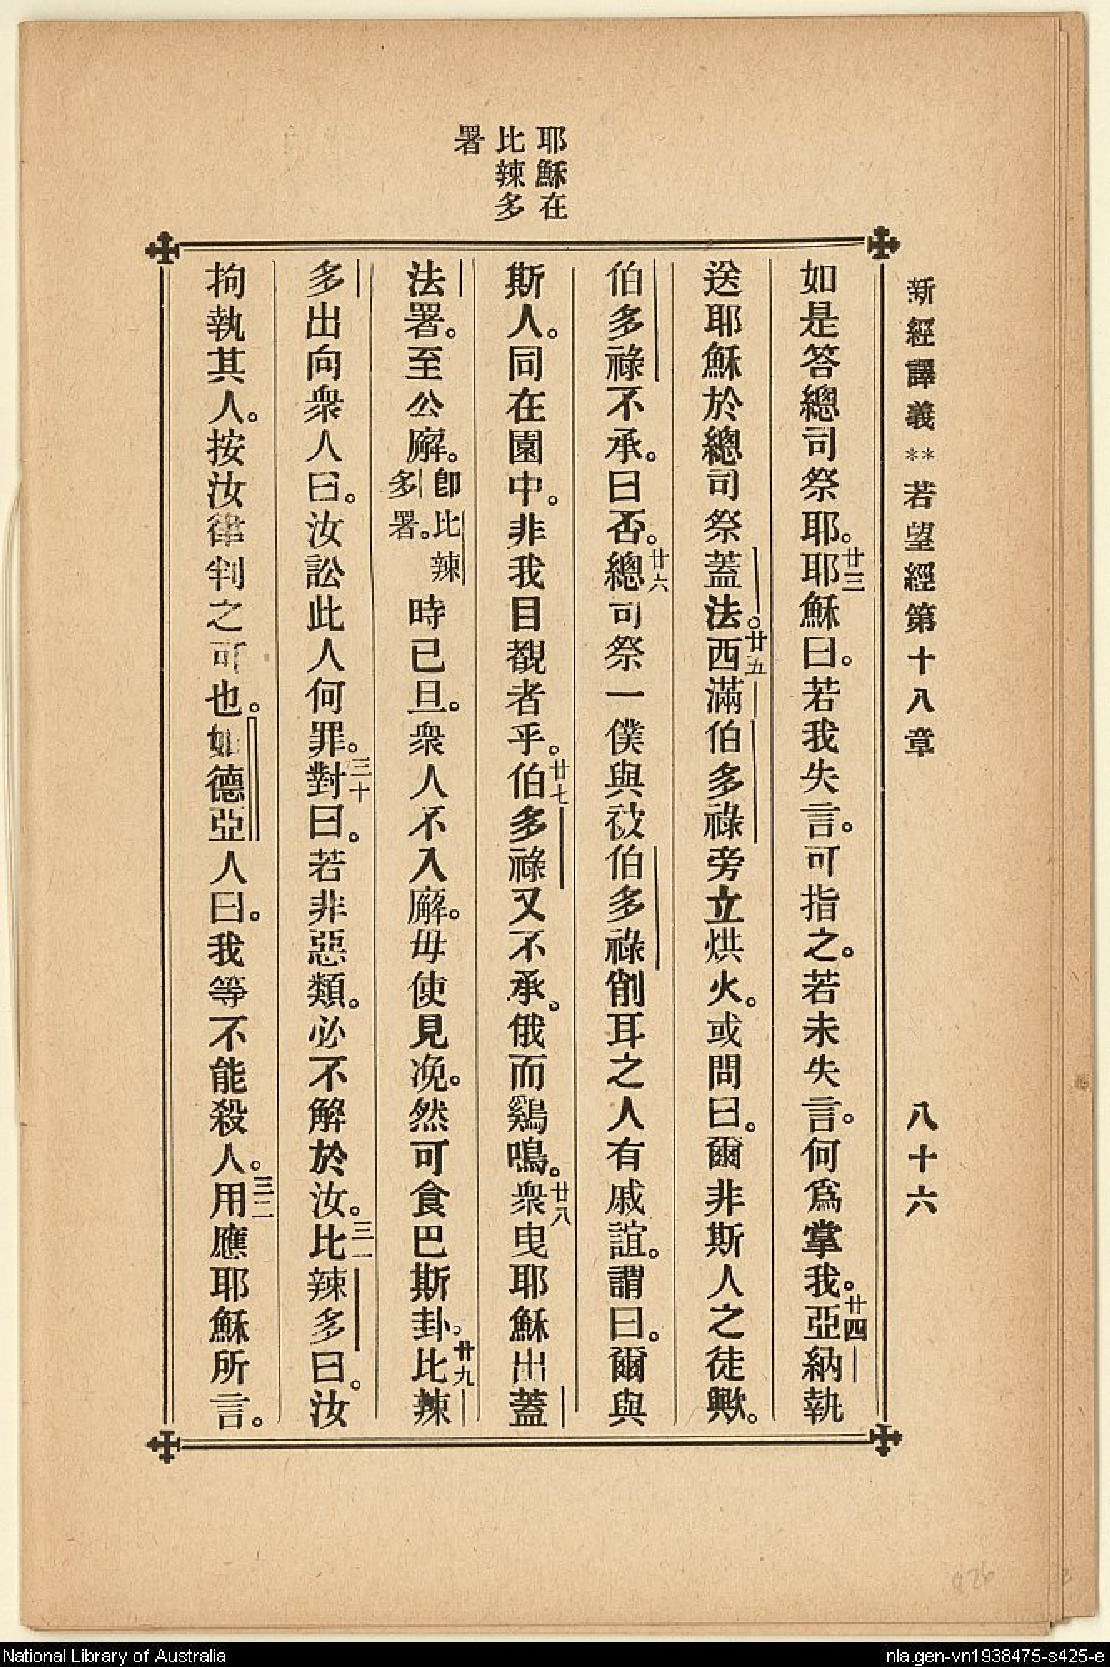 新經譯義**若望經第十八章 八十六
耶穌在
比辣多
署
如是答總司祭耶。廿三耶穌曰。若我失言。可指之。若未失言。何爲掌我。廿四亞納執
送耶穌於總司祭蓋法。廿五西滿伯多祿旁立烘火。或問曰。爾非斯人之徒歟。
伯多祿不承。曰否。廿六總司祭一僕與彼伯多祿削耳之人有戚誼。謂曰。爾與
斯人。同在園中。非我目覩者乎。廿七伯多祿又不承。俄而鷄鳴。廿八衆曳耶穌出蓋
法署。至公廨。卽比辣多署。時已旦。衆人不入廨。毋使見浼。然可食巴斯卦。廿九比辣
多出向衆人曰。汝訟此人何罪。三十對曰。若非惡類。必不解於汝。三一比辣多曰。汝
拘執其人。按汝律判之可也。如德亞人曰。我等不能殺人。三二用應耶穌所言。
National Library of Australia
nla.gen-vn1938475-s425-e